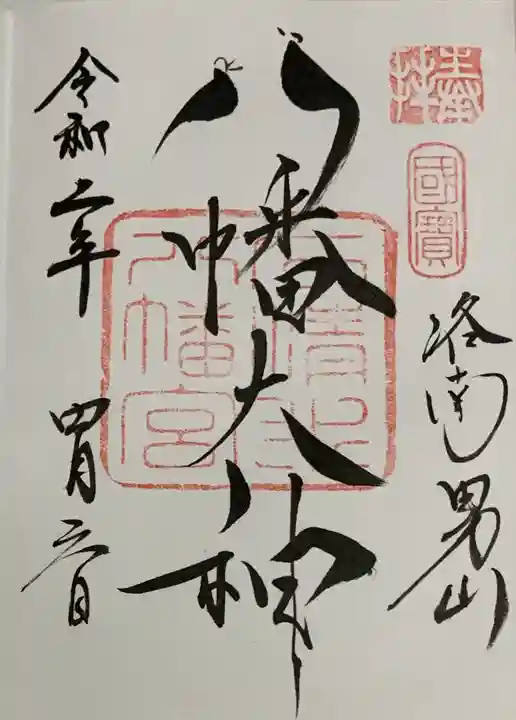 國寶
洛南男山
八幡大神
石清水八幡宮
令和二年 四月六日